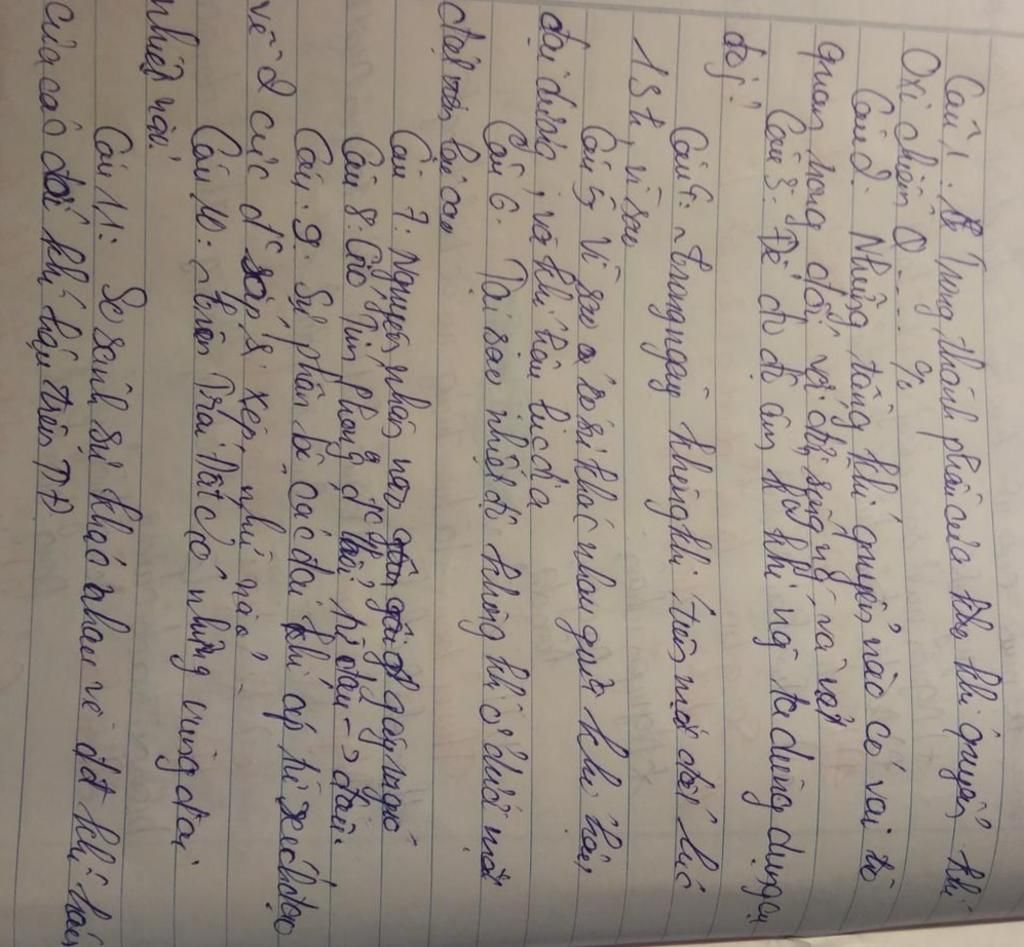 Câu 1. Trong thành phần của khí quyển thì
Oxi chiếm 0 .... %
Câu 2. Những tầng khí quyển nào có vai trò
quan trong đối với đời sống và vật
Câu 3: Để đo độ ẩm kk thì ng ta dùng dụng cụ
đó?
Câu 4: Trong ngày không khí trên mặt đất lúc
13h, vì sao
Câu 5 Vì sao có sự khác nhau giữa khí hậu
đại dương, và khí hậu lục địa
Câu 6. Tại sao nhiệt độ không khí ở dưới mặt
đất trên cao
Câu 7. Nguyên nhân nào gây gió
Câu 8. Gió Tín phong đc thổi từ đâu -> đâu
Câu 9. Sự phân bố các đai khí áp từ xích đạo
về 2 cực đc sắp xếp như nào?
Câu 10. Trên Trái Đất có những vùng đai
nhiệt nào?
Câu 11: So sánh sự khác nhau về đ² khí hậu
của các đới khí hậu trên TĐ